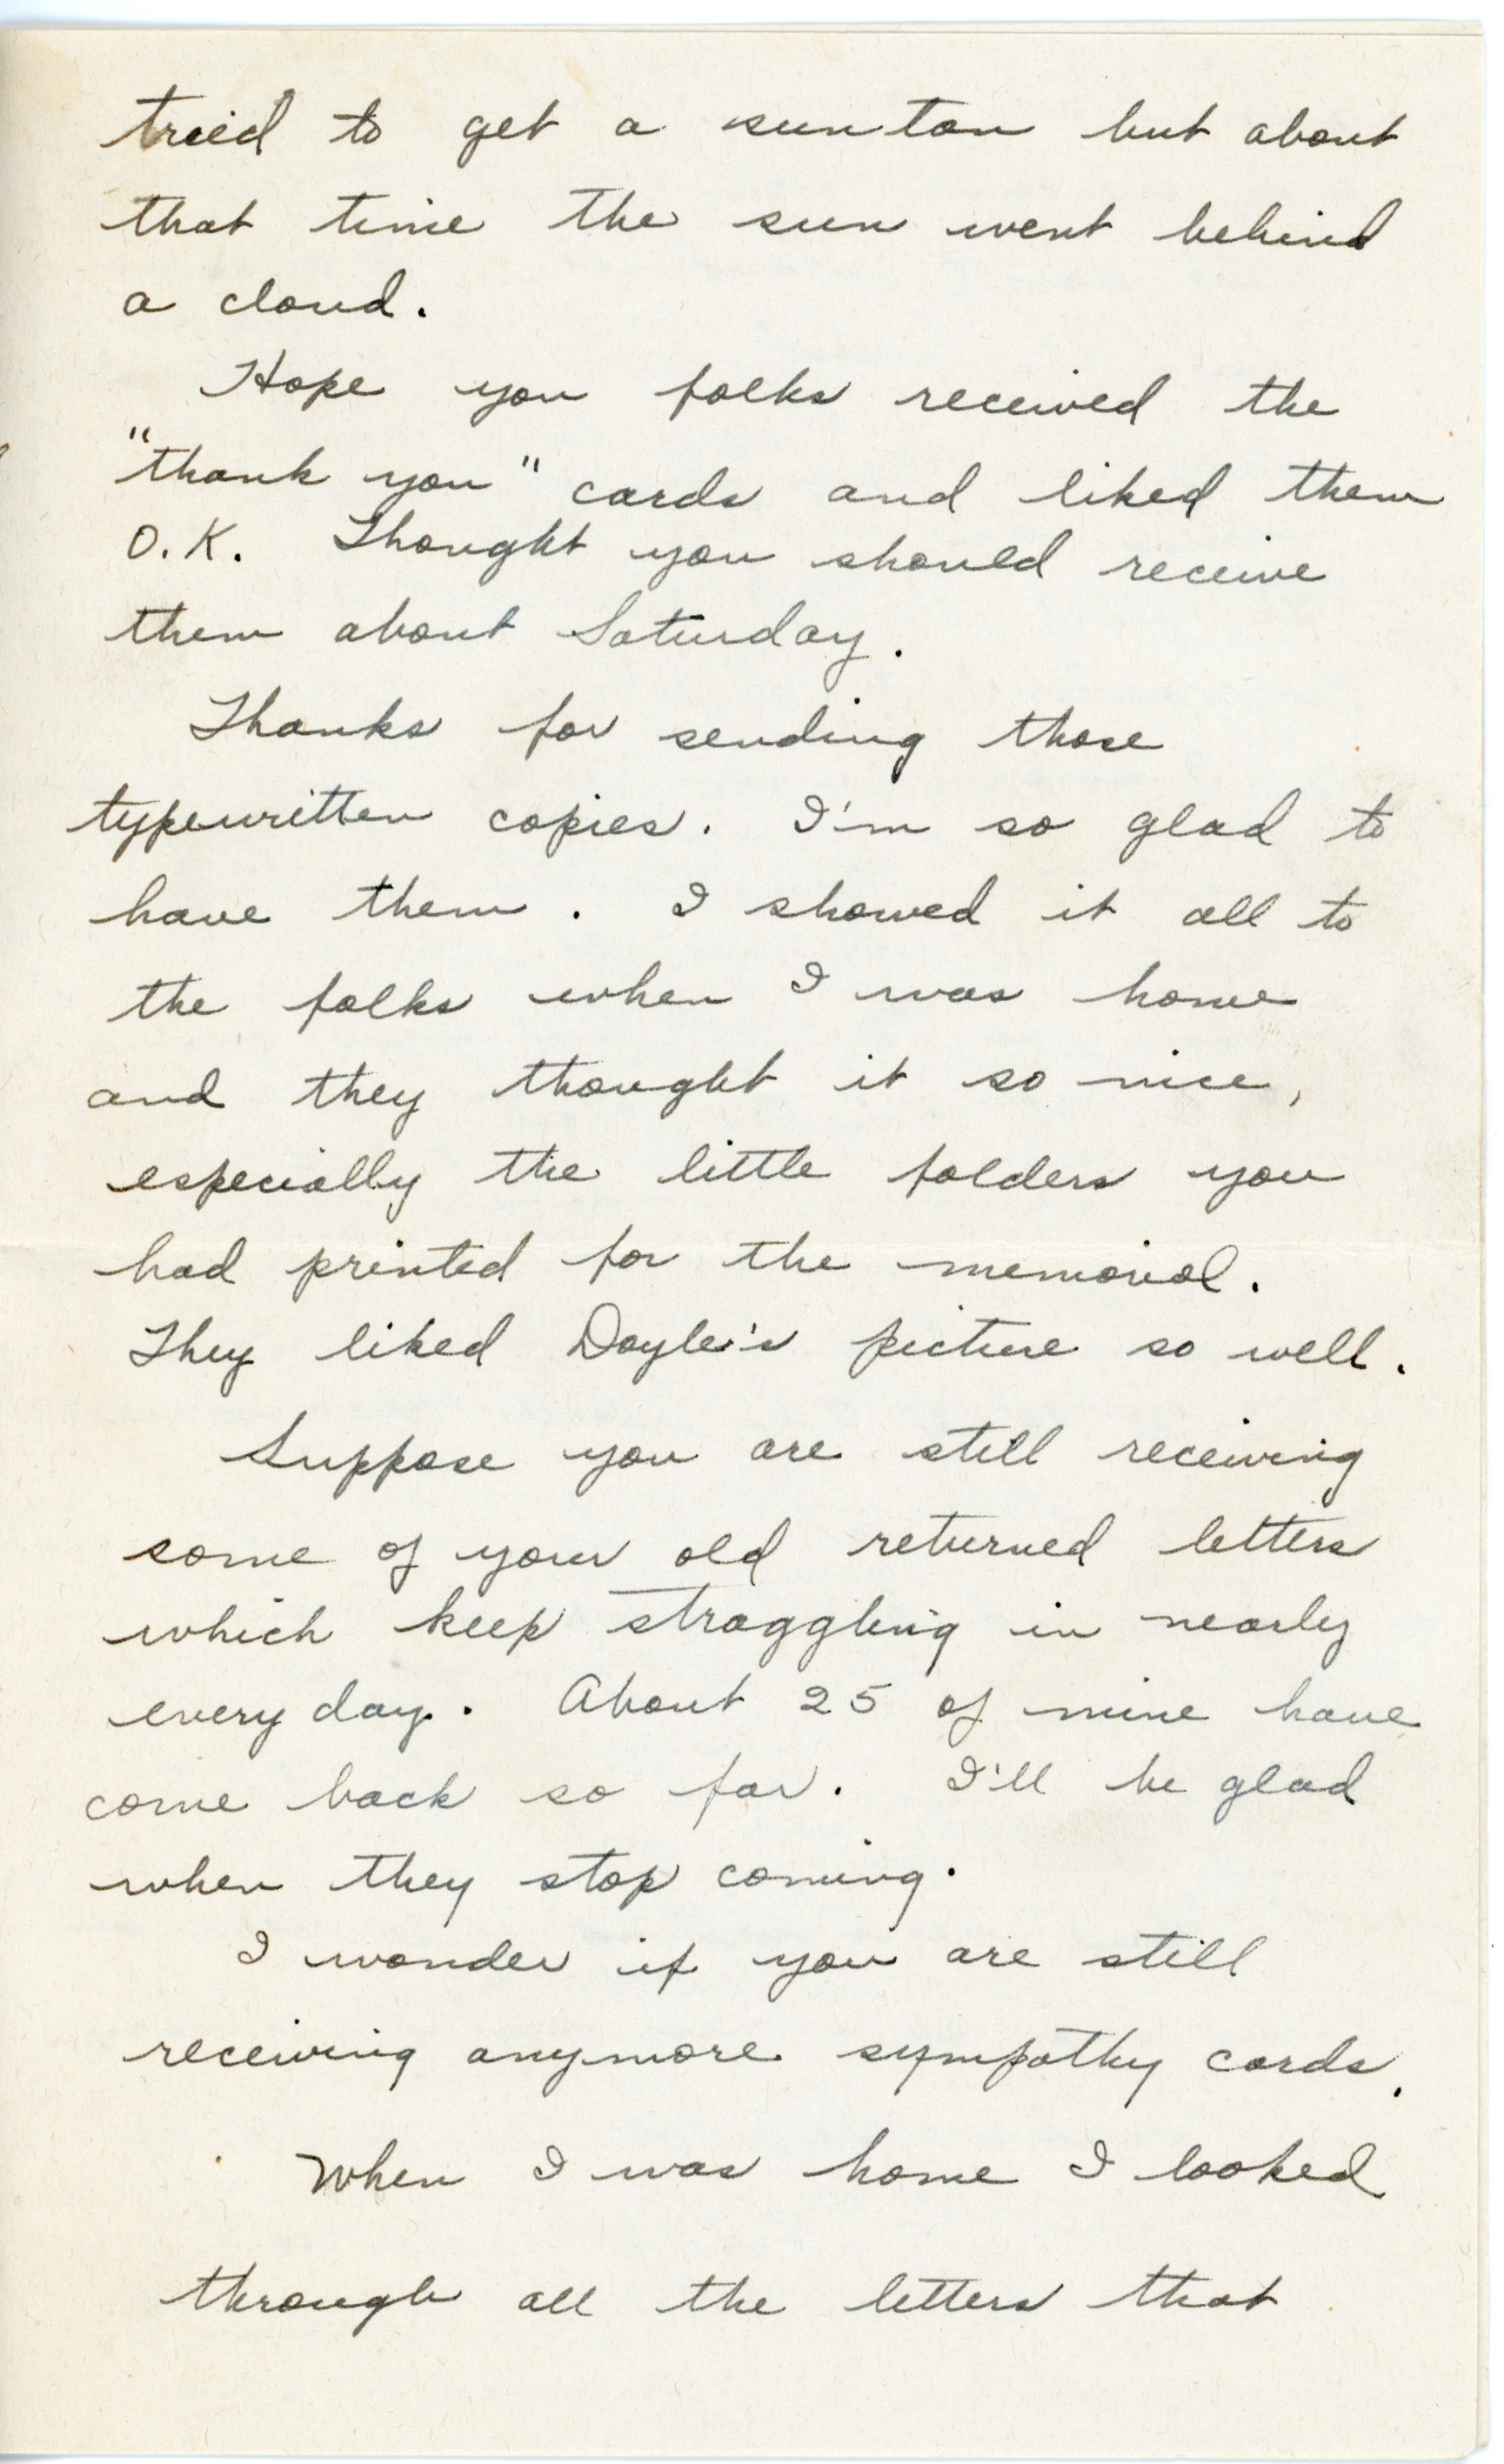 tried to get a sun tan but about
that time the sun went behind
a cloud.
Hope you folks received the
"thank you" cards and liked them
O.K. Thought you should receive
them about Saturday.
Thanks for sending those
typewritten copies. I'm so glad to
have them. I showed it all to
the folks when I was home
and they thought it so nice,
especially the little folders you
had printed for the memorial.
They liked Doyle's picture so well.
Suppose you are still receiving
some of your old returned letters
which keep straggling in nearly
every day. About 25 of mine have
come back so far. I'll be glad
when they stop coming.
I wonder if you are still
receiving anymore sympathy cards.
When I was home I looked
through all the letters that